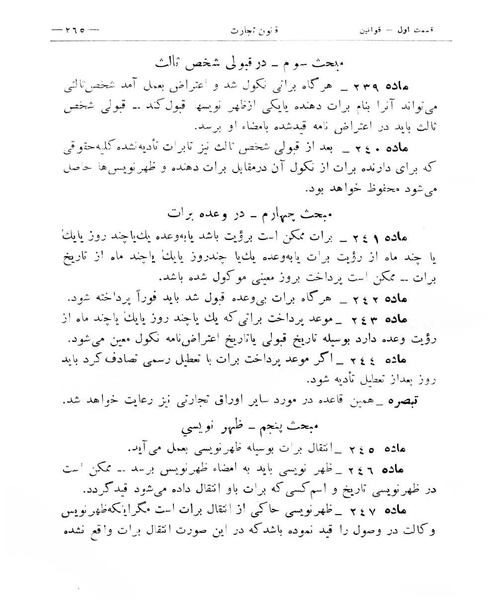 قسمت اول – قوانین
قانون تجارت
— ۲۶۵ —
مبحث سوم – در قبولی شخص ثالث
ماده ۲۳۹ – هرگاه براتی نکول شد و اعتراض بعمل آمد شخص ثالثی
می‌تواند آنرا بنام برات دهنده یا یکی از ظهر نویسها قبول کند – قبولی شخص
ثالث باید در اعتراض نامه قید شده بامضاء او برسد.
ماده ۲۴۰ – بعد از قبولی شخص ثالث نیز تا برات تأدیه نشده کلیه حقوقی
که برای دارنده برات از نکول آن در مقابل برات دهنده و ظهر نویس‌ها حاصل
می‌شود محفوظ خواهد بود.
مبحث چهارم – در وعده برات
ماده ۲۴۱ – برات ممکن است برؤیت باشد یا بوعده یك یا چند روز یا یك
یا چند ماه از رؤیت برات یا بوعده یك یا چند روز یا یك یا چند ماه از تاریخ
برات – ممکن است پرداخت بروز معینی موکول شده باشد.
ماده ۲۴۲ – هرگاه برات بی‌وعده قبول شد باید فوراً پرداخته شود.
ماده ۲۴۳ – موعد پرداخت براتی که یك یا چند روز یا یك یا چند ماه از
رؤیت وعده دارد بوسیله تاریخ قبولی یا تاریخ اعتراض نامه نکول معین می‌شود.
ماده ۲۴۴ – اگر موعد پرداخت برات با تعطیل رسمی تصادف کرد باید
روز بعد از تعطیل تأدیه شود.
تبصره – همین قاعده در مورد سایر اوراق تجارتی نیز رعایت خواهد شد.
مبحث پنجم – ظهر نویسی
ماده ۲۴۵ – انتقال برات بوسیله ظهر نویسی بعمل می‌آید.
ماده ۲۴۶ – ظهر نویسی باید به امضاء ظهر نویس برسد – ممکن است
در ظهر نویسی تاریخ و اسم کسی که برات باو انتقال داده می‌شود قید گردد.
ماده ۲۴۷ – ظهر نویسی حاکی از انتقال برات است مگر اینکه ظهر نویس
وکالت در وصول را قید نموده باشد که در این صورت انتقال برات واقع نشده